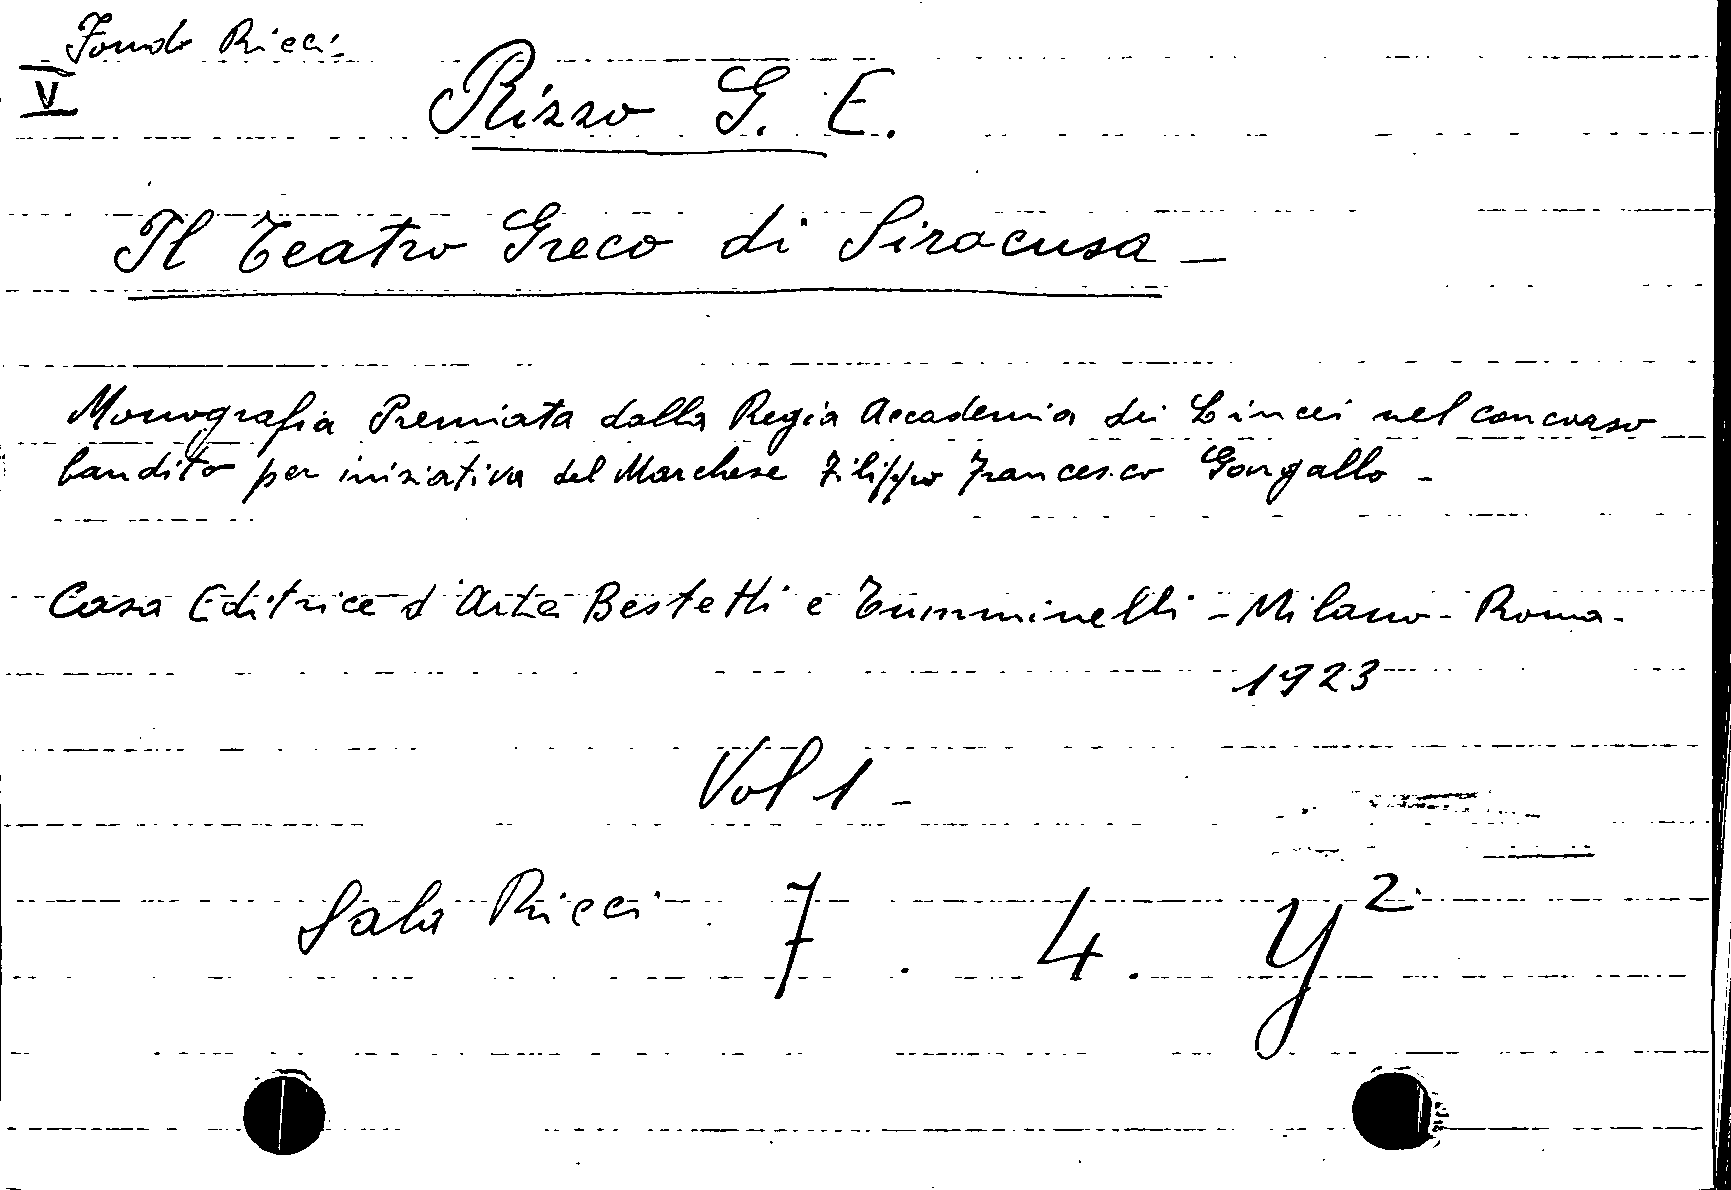 Fondo Ricci-
V
Rizzo G. E.
Il Teatro Greco di Siracusa -
Monografia Premiata dalla Regia Accademia dei Lincei nel concorso
bandito per iniziativa del Marchese Filippo Francesco Gargallo -
Casa Editrice d'Arte Bestetti e Tumminelli - Milano - Roma -
1923
Vol 1 -
Sala Ricci 7 . 4 . y²